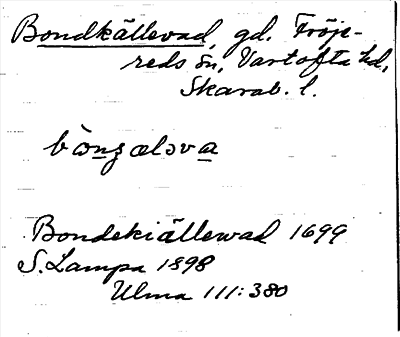 Bondkällevad, gd. Fröje-
reds sn, Vartofta hd,
Skarab. l.
bònʒæləva
Bondekiällewad 1699
S. Lampa 1898
Ulma 111:380